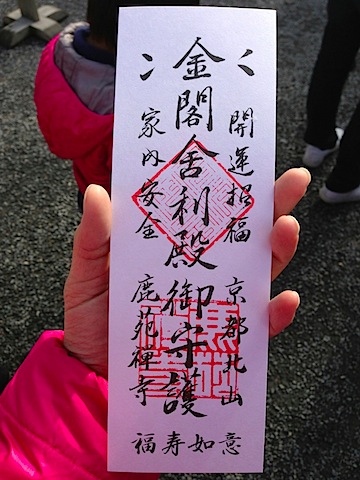 開運招福 京都北山
金閣舎利殿御守護
家内安全 鹿苑禅寺
福寿如意